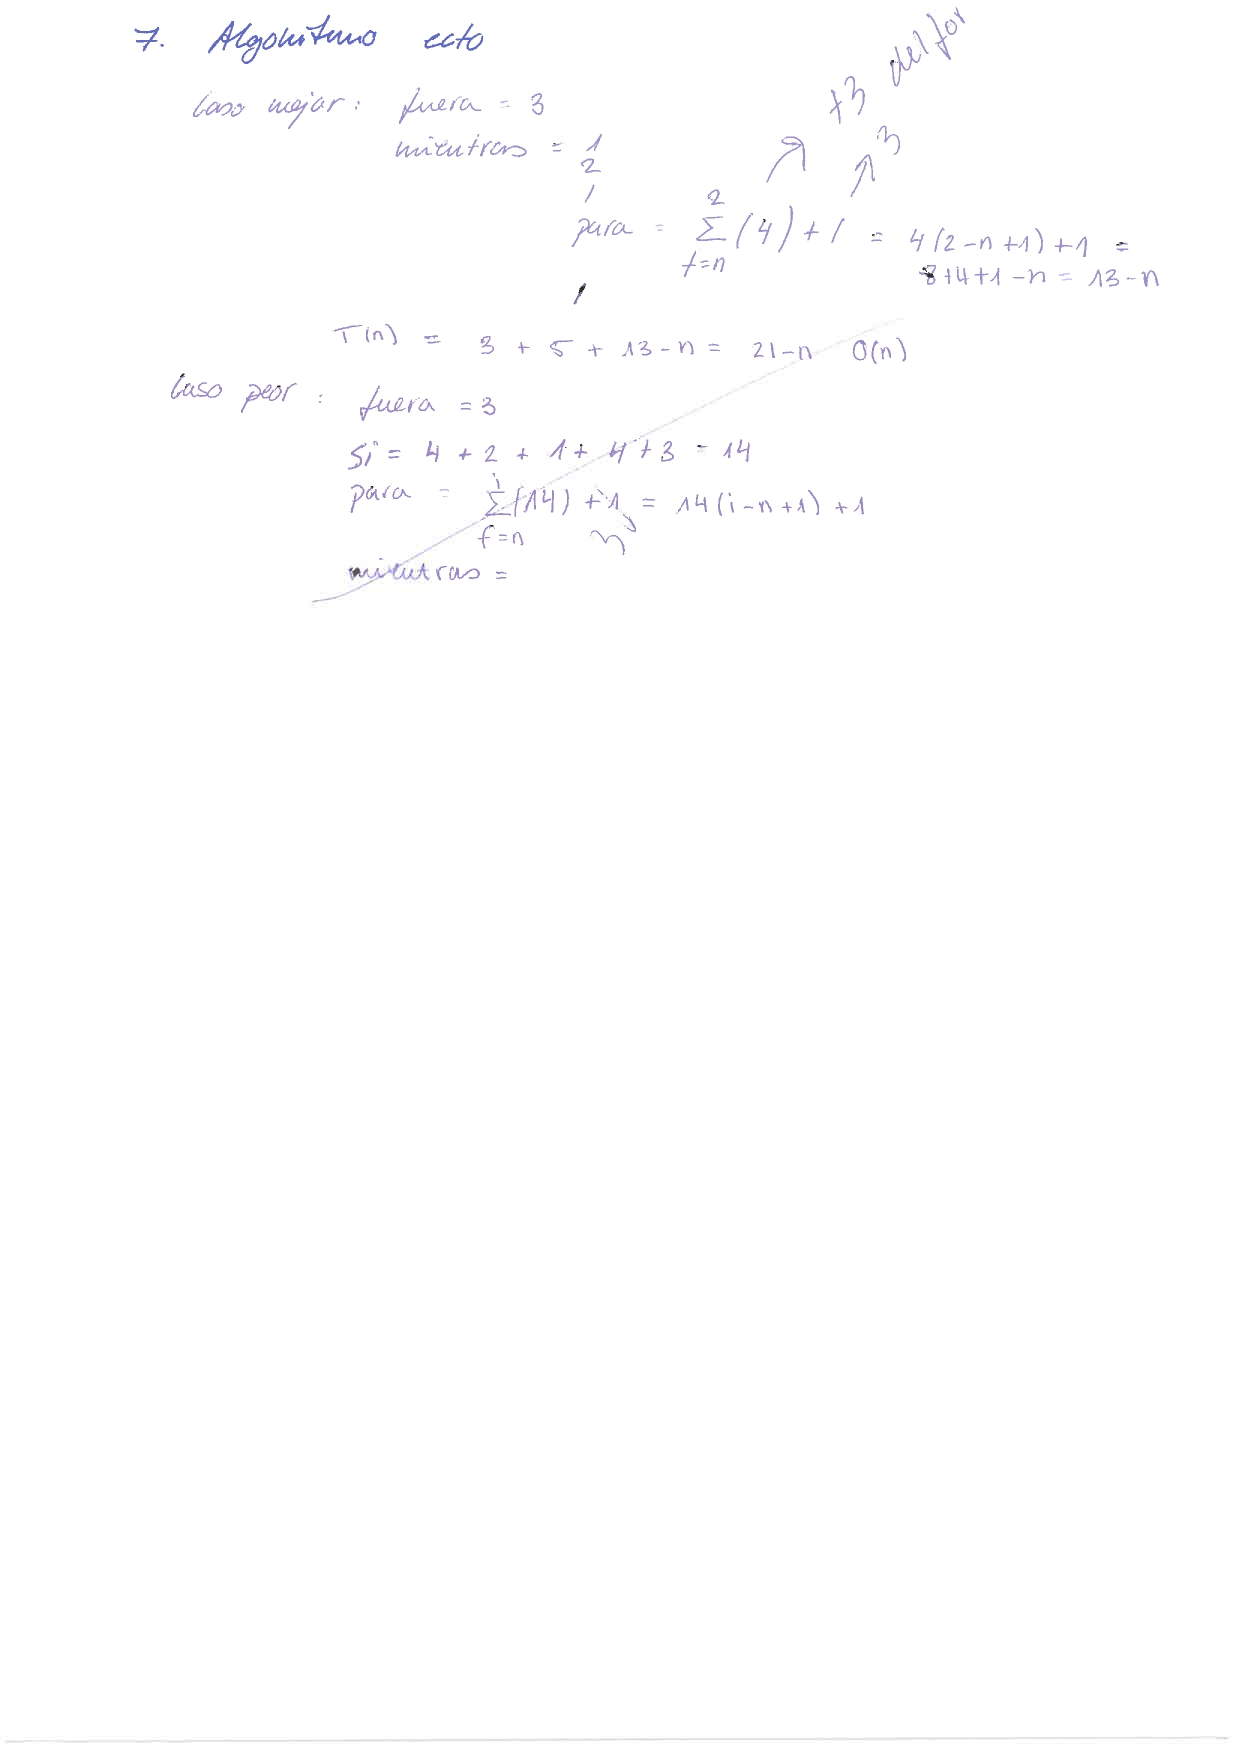 7. Algoritmo ecto
+3 del for
3
Caso mejor: fuera = 3
mientras = 1
2
1
para = 2 Σ f=n (4) + 1 = 4(2-n+1)+1 =
8+4+1-n = 13-n
T(n) = 3 + 5 + 13-n = 21-n O(n)
Caso peor: fuera = 3
Si = 4 + 2 + 1 + 4 + 3 = 14
para = i Σ f=n (14) + 1 = 14(i-n+1) + 1
mientras =